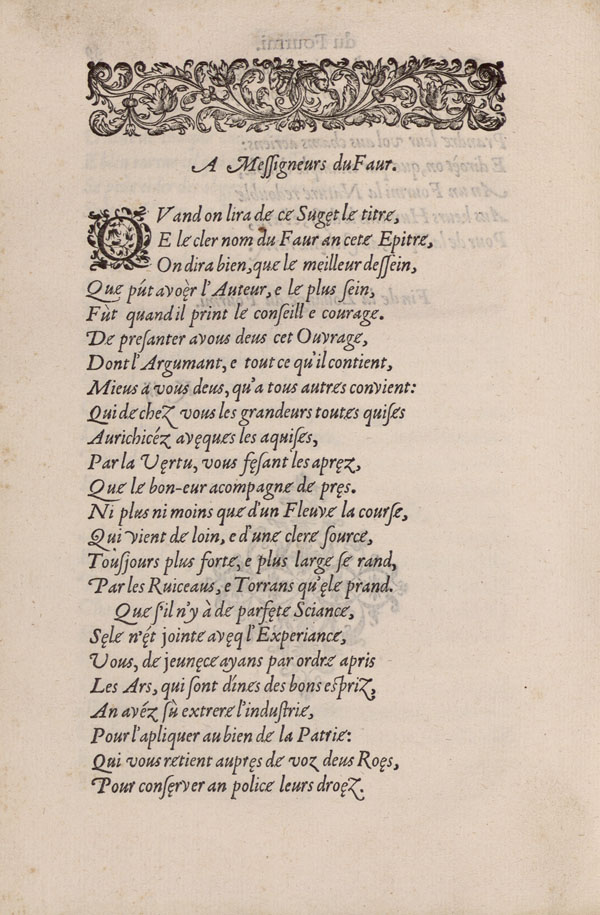 A Meſſigneurs du Faur.
QVand on lira de ce Sugęt le titre,
E le cler nom du Faur an cete Epitre,
On dira bien, que le meilleur deſſein,
Que pút avoęr l'Auteur, e le plus ſein,
Fùt quand il print le conſeilh e courage.
De preſanter a vous deus cet Ouvrage,
Dont l'Argumant, e tout ce qu'il contient,
Mieus à vous deus, qu'a tous autres convient:
Qui de cheź vous les grandeurs toutes quiſes
Aurichicéz avęques les aquiſes,
Par la Vęrtu, vous fęſant les apręz,
Que le bon-eur acompagne de pręs.
Ni plus ni moins que d'un Fleuve la courſe,
Qui vient de loin, e d'une clere ſource,
Touſjours plus forte, e plus large ſe rand,
Par les Ruiceaus, e Torrans qu'ęle prand.
Que ſ'il n'y à de parfęte Sciance,
Sęle n'ęt jointe avęq l'Experiance,
Vous, de jeunęce ayans par ordre apris
Les Ars, qui ſont dínes des bons eſpriz,
An avéz ſù extrere l'induſtrie,
Pour l'apliquer au bien de la Patrie:
Qui vous retient aupręs de voz deus Roęs,
Pour conſęrver an police leurs droęz.